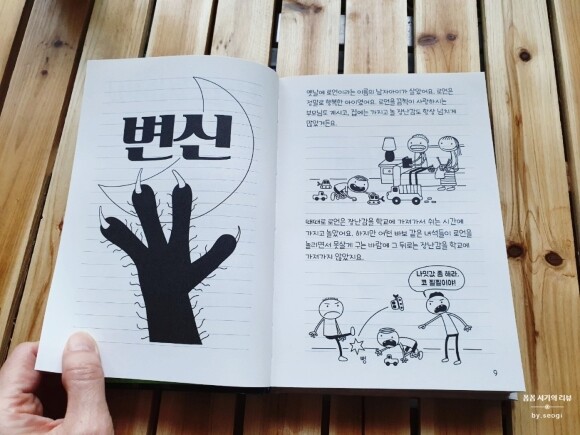 변신
옛날에 로언이라는 이름의 남자아이가 살았어요. 로언은
정말로 행복한 아이였어요. 로언을 끔찍이 사랑하시는
부모님도 계시고, 집에는 가지고 놀 장난감도 항상 넘치게
많았거든요.
때때로 로언은 장난감을 학교에 가져가서 쉬는 시간에
가지고 놀았어요. 하지만 어떤 바보 같은 녀석들이 로언을
놀리면서 못살게 구는 바람에 그 뒤로는 장난감을 학교에
가져가지 않았지요.
나잇값 좀 해라,
코 찔찔이야!
9
봄봄 서기의 리뷰
by.seogi